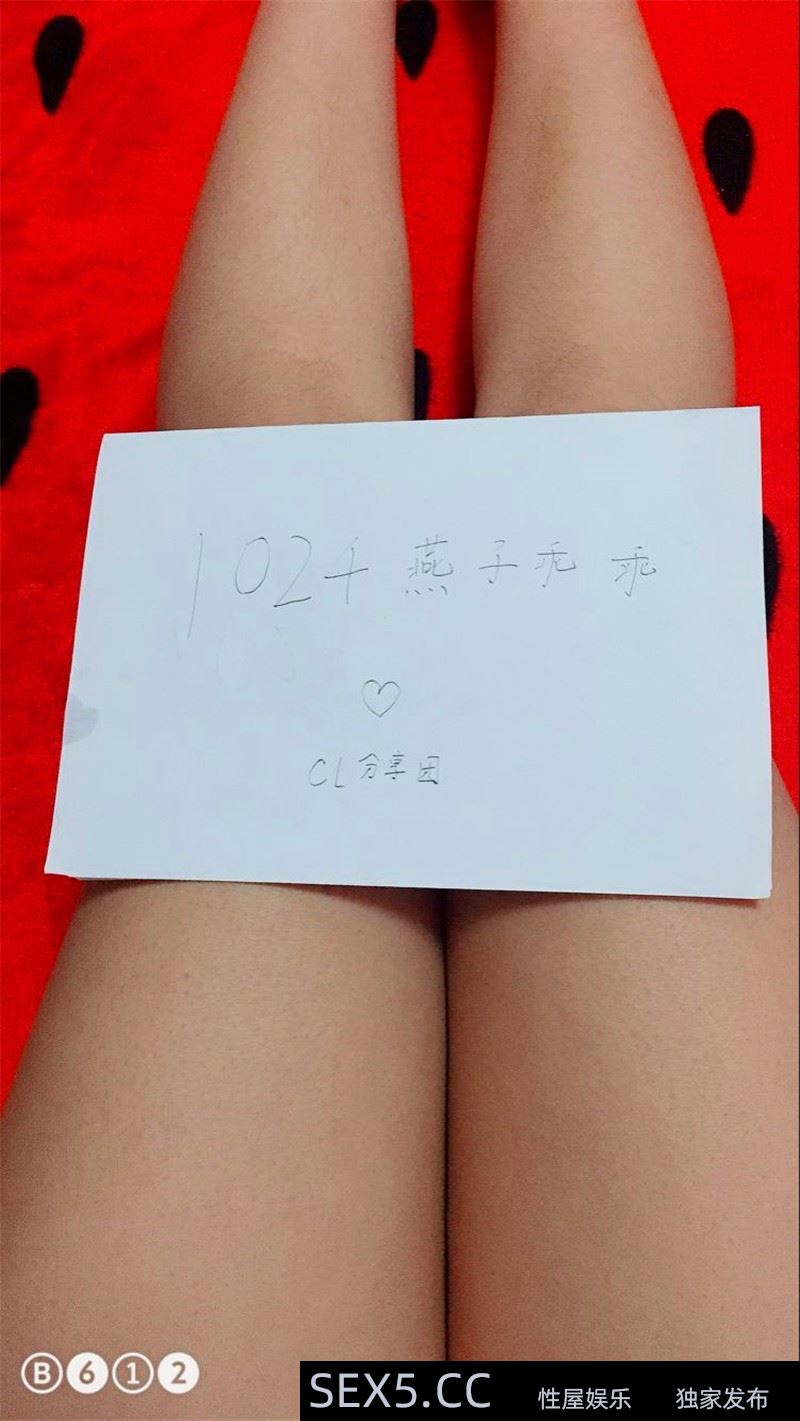 1024燕子乖乖
♡
CL分享团
B612
SEX5.CC 性屋娱乐 独家发布